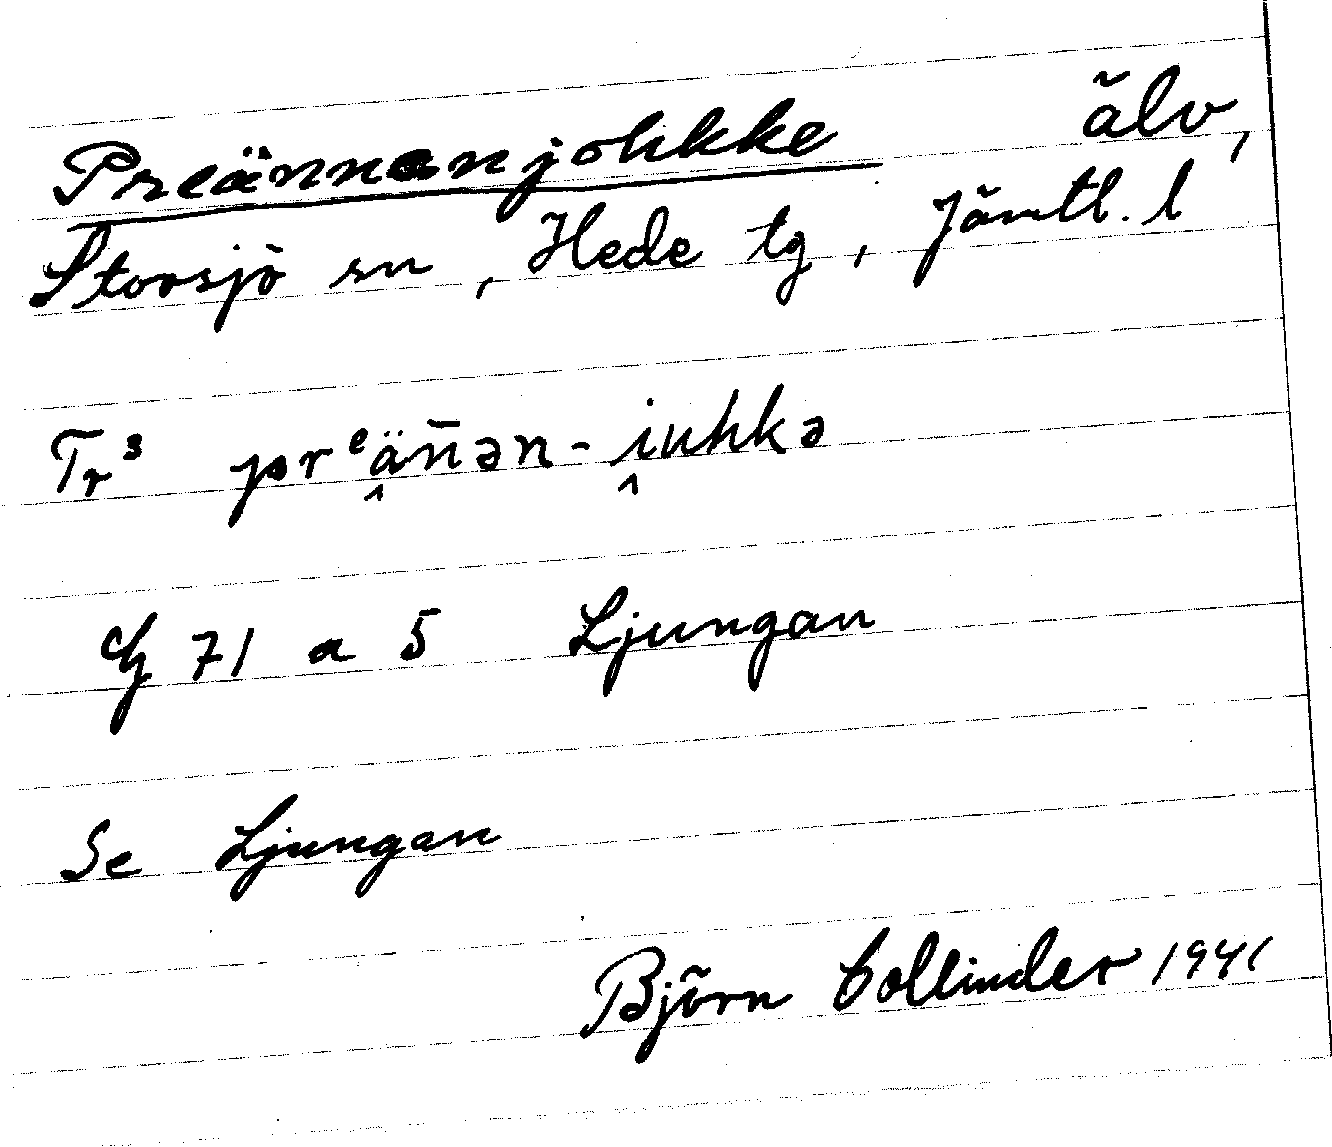 Preännanjohkke älv,
Storsjö sn, Hede tg, Jämtl. l
Tr³ prᵉä̭n̄ən-i̭uhkə
Cg 71 a 5 Ljungan
Se Ljungan
Björn Collinder 1941